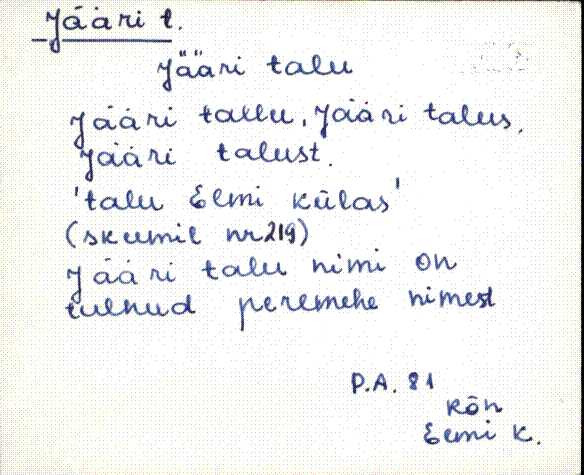 Jääri t.
Jääri talu
Jääri tallu, Jääri talus,
Jääri talust.
'talu Elmi külas'
(skeemil nr 219)
Jääri talu nimi on
tulnud peremehe nimest
P.A. 81
Kõn
Eemi k.